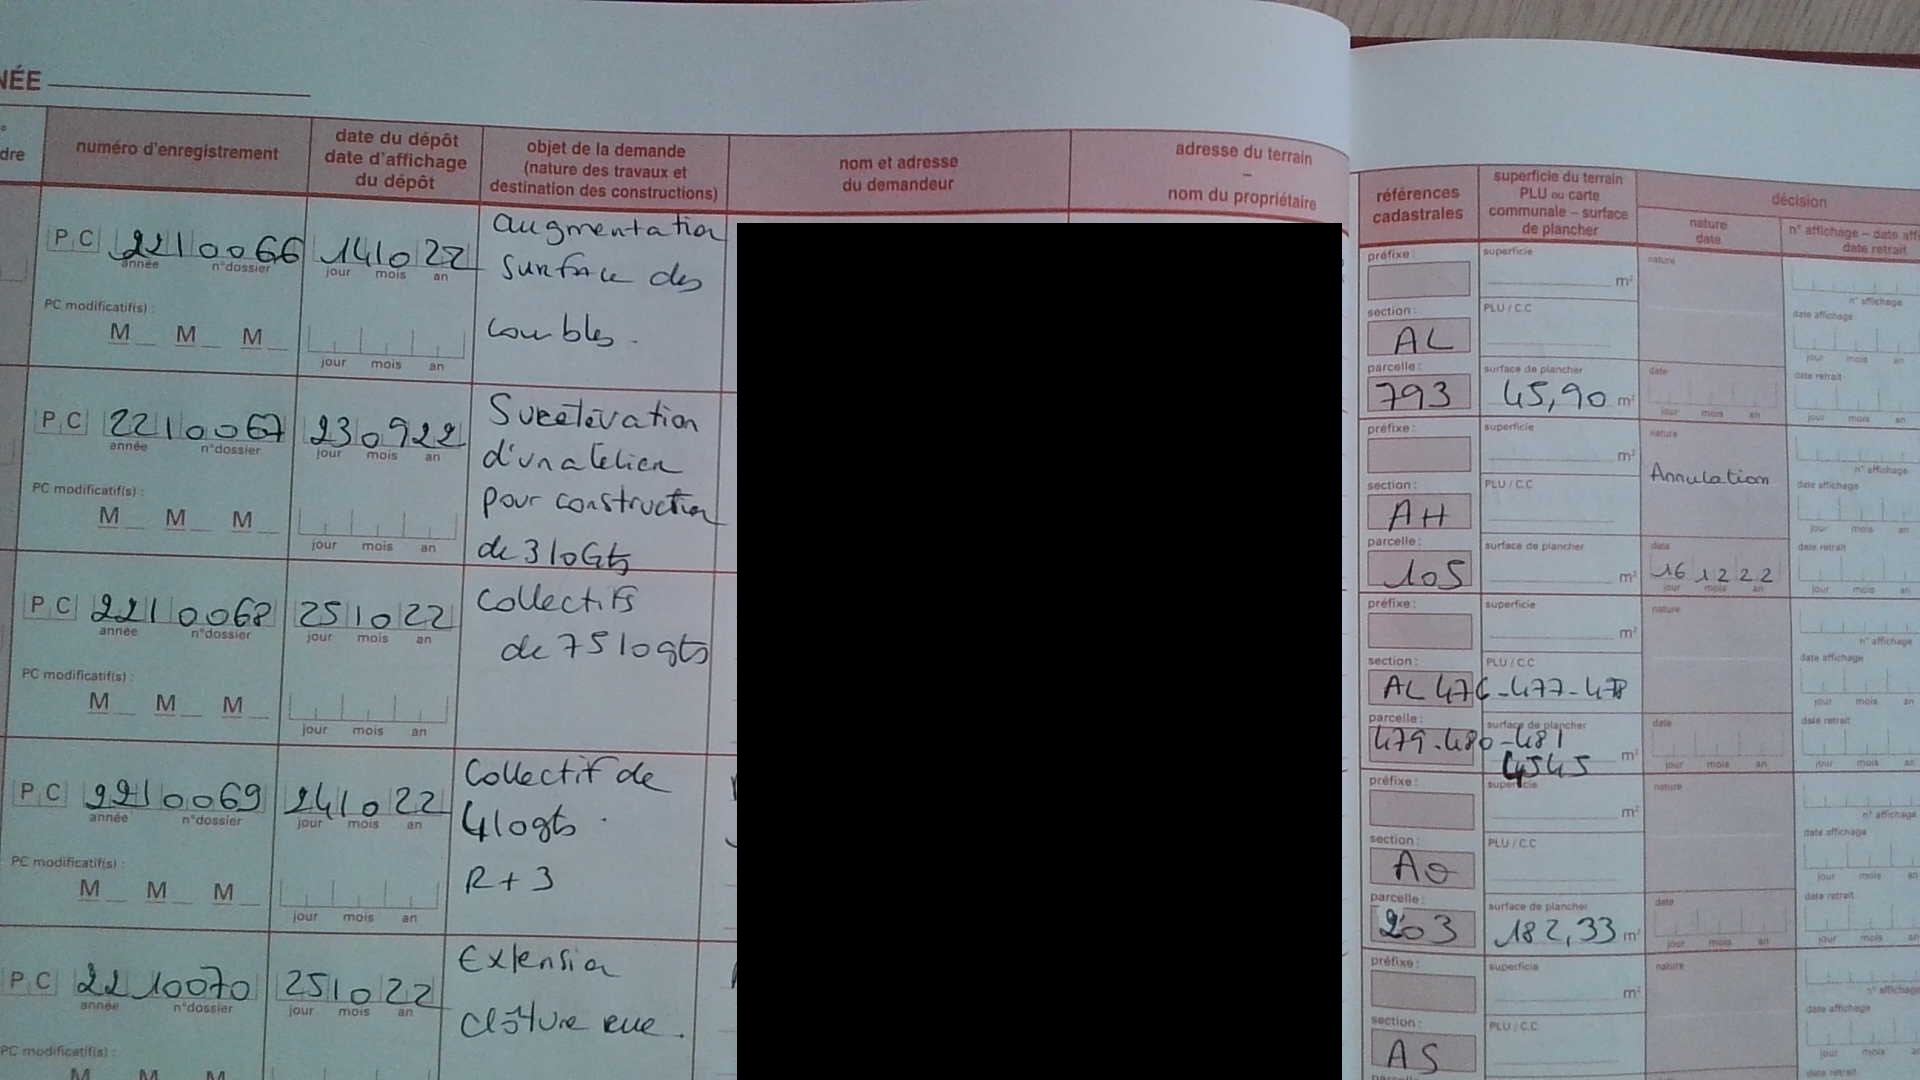 NÉE
dre
numéro d'enregistrement
date du dépôt
date d'affichage
du dépôt
objet de la demande
(nature des travaux et
destination des constructions)
nom et adresse
du demandeur
adresse du terrain
–
nom du propriétaire
références
cadastrales
superficie du terrain
PLU ou carte
communale – surface
de plancher
décision
nature
date
n° affichage – date aff
date retrait
PC 2210066
année n°dossier
141022
jour mois an
augmentation
surface des
combles.
PC modificatif(s) :
M M M
jour mois an
préfixe :
section :
AL
parcelle :
793
superficie
m²
PLU / C.C
surface de plancher
45,90 m²
nature
date
jour mois an
n° affichage
date affichage
jour mois an
date retrait
jour mois an
PC 2210067
année n°dossier
230922
jour mois an
Surélévation
d'un atelier
pour construction
de 3 loGts
PC modificatif(s) :
M M M
jour mois an
préfixe :
section :
AH
parcelle :
105
superficie
m²
PLU / C.C
surface de plancher
m²
nature
Annulation
date
16 12 22
jour mois an
n° affichage
date affichage
jour mois an
date retrait
jour mois an
PC 2210068
année n°dossier
251022
jour mois an
Collectifs
de 75 logts
PC modificatif(s) :
M M M
jour mois an
préfixe :
section :
AL 476-477-478
parcelle :
479-480-481
superficie
m²
PLU / C.C
surface de plancher
4545 m²
nature
date
jour mois an
n° affichage
date affichage
jour mois an
date retrait
jour mois an
PC 2210069
année n°dossier
241022
jour mois an
Collectif de
4 logts
R+3
PC modificatif(s) :
M M M
jour mois an
préfixe :
section :
parcelle :
203
superficie
m²
PLU / C.C
surface de plancher
182,33 m²
nature
date
jour mois an
n° affichage
date affichage
jour mois an
date retrait
jour mois an
PC 2210070
année n°dossier
251022
jour mois an
Extension
clôture rue.
PC modificatif(s) :
M M M
préfixe :
section :
AS
superficie
m²
PLU / C.C
nature
n° affichage
date affichage
jour mois
date retrait